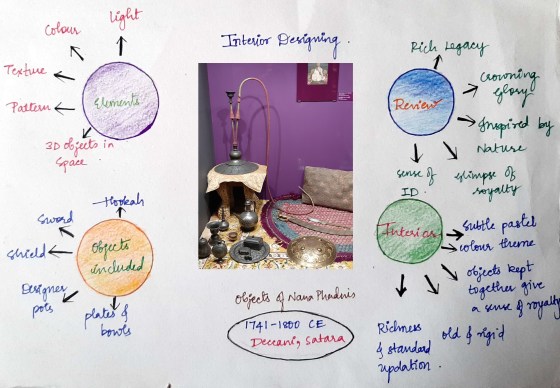 Interior Designing.
Light
Colour
Texture
Pattern
3D objects in
Space.
Elements
Rich Legacy
Crowning
Glory
Inspired by
Nature
glimpse of
royalty
sense of
ID.
Review
Hookah
Sword
Shield
Designer
pots
plates &
bowls
Objects
included
Interior
Subtle pastel
colour theme
objects kept
together give
a sense of royalty
old & rigid
Richness
& standard
updation.
Objects of Nana Phadnis
1741-1800 CE
Deccani, Satara